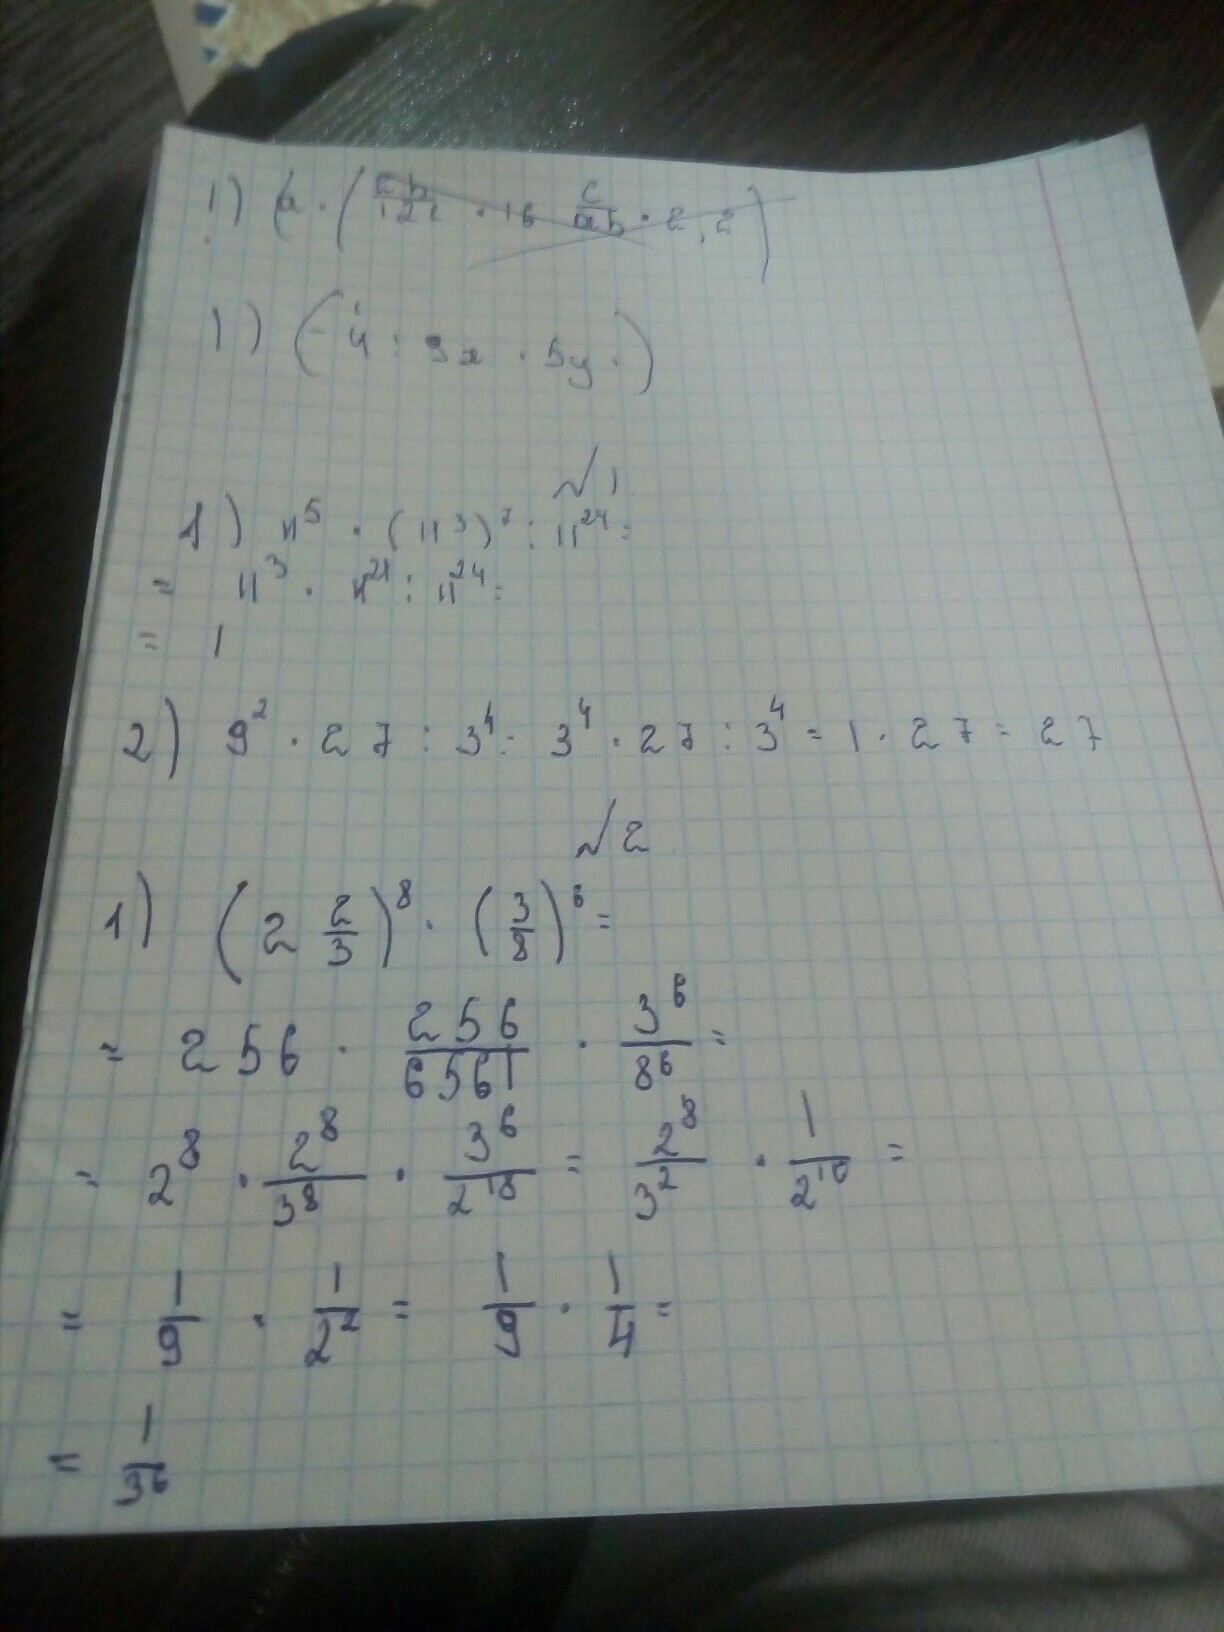 1) (-4 : 9x · 5y · )
№1
1) 11^5 · (11^3)^7 : 11^24 =
= 11^3 · 11^21 : 11^24 =
= 1
2) 9^2 · 27 : 3^4 = 3^4 · 27 : 3^4 = 1 · 27 = 27
№2
1) (2 2/3)^8 · (3/8)^6 =
= 256 · 256/6561 · 3^6/8^6 =
= 2^8 · 2^8/3^8 · 3^6/2^18 = 2^8/3^2 · 1/2^10 =
= 1/9 · 1/2^2 = 1/9 · 1/4 =
= 1/36